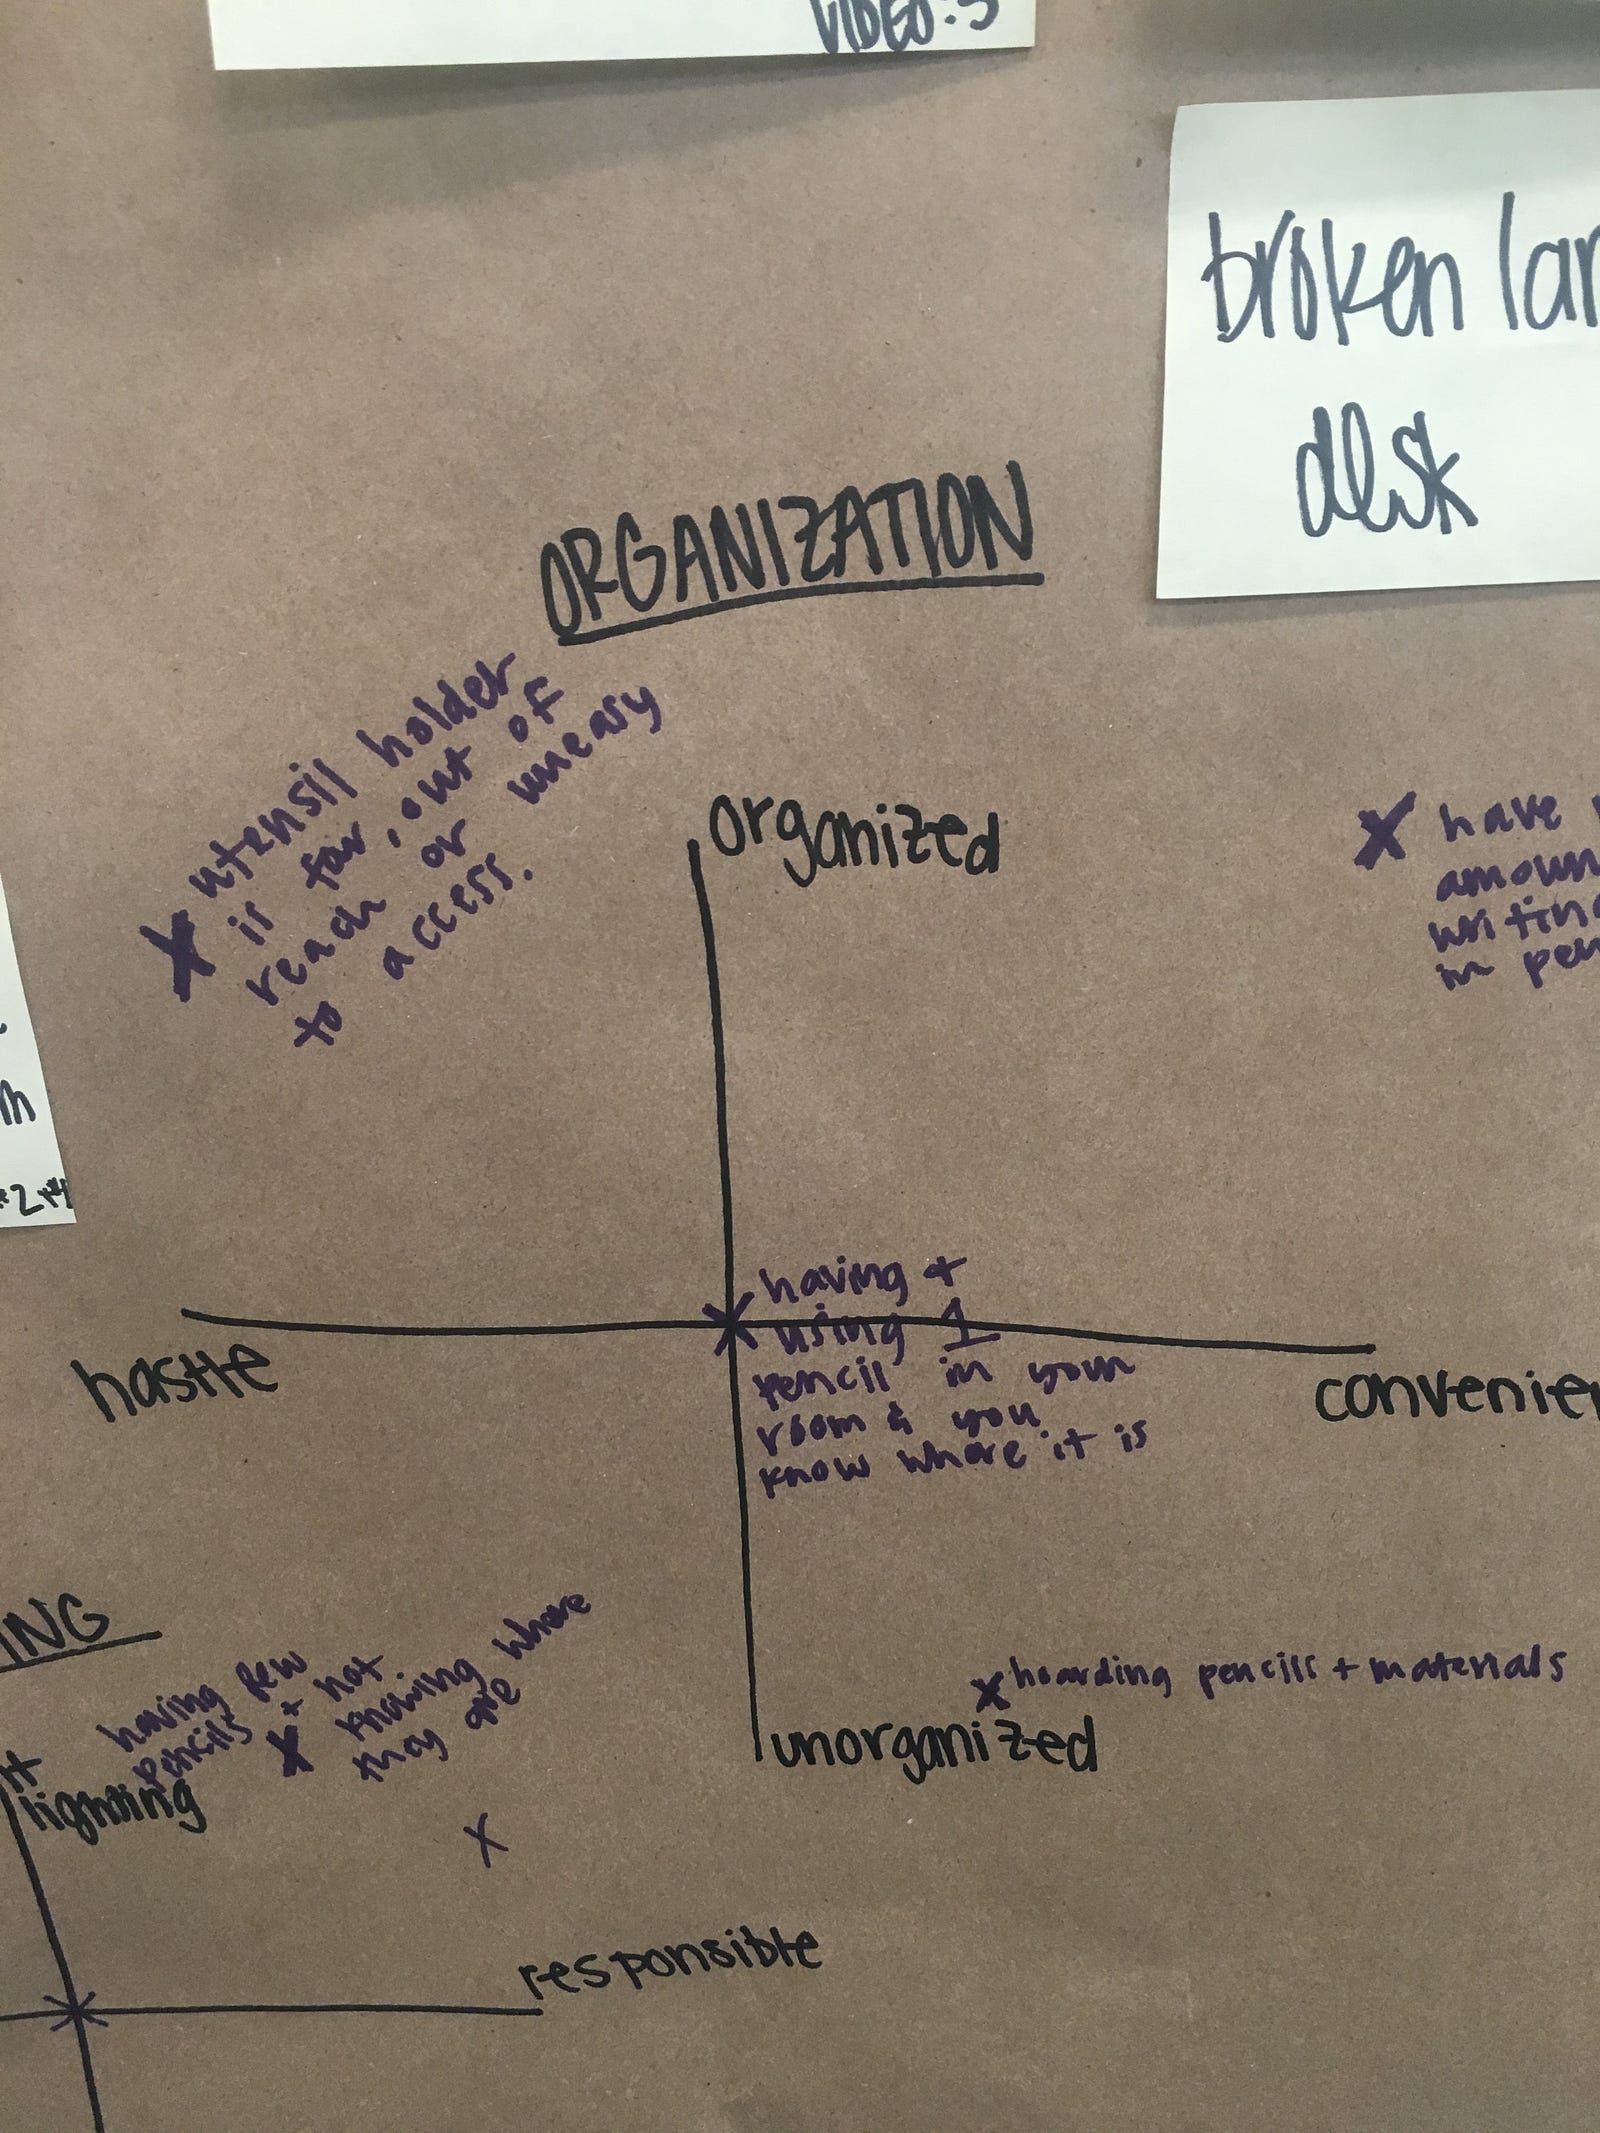 VIDEO:3
broken lar
desk
ORGANIZATION
x utensil holder
is far, out of
reach or uneasy
to access.
organized
x have
amoun
writing
in pen
m
#2+4
having +
x using 1
pencil in your
room & you
know where it is
hastle
convenien
ING
having few
pencils + not
x knowing where
they are
x hoarding pencils + materials
unorganized
lighting
x
responsible